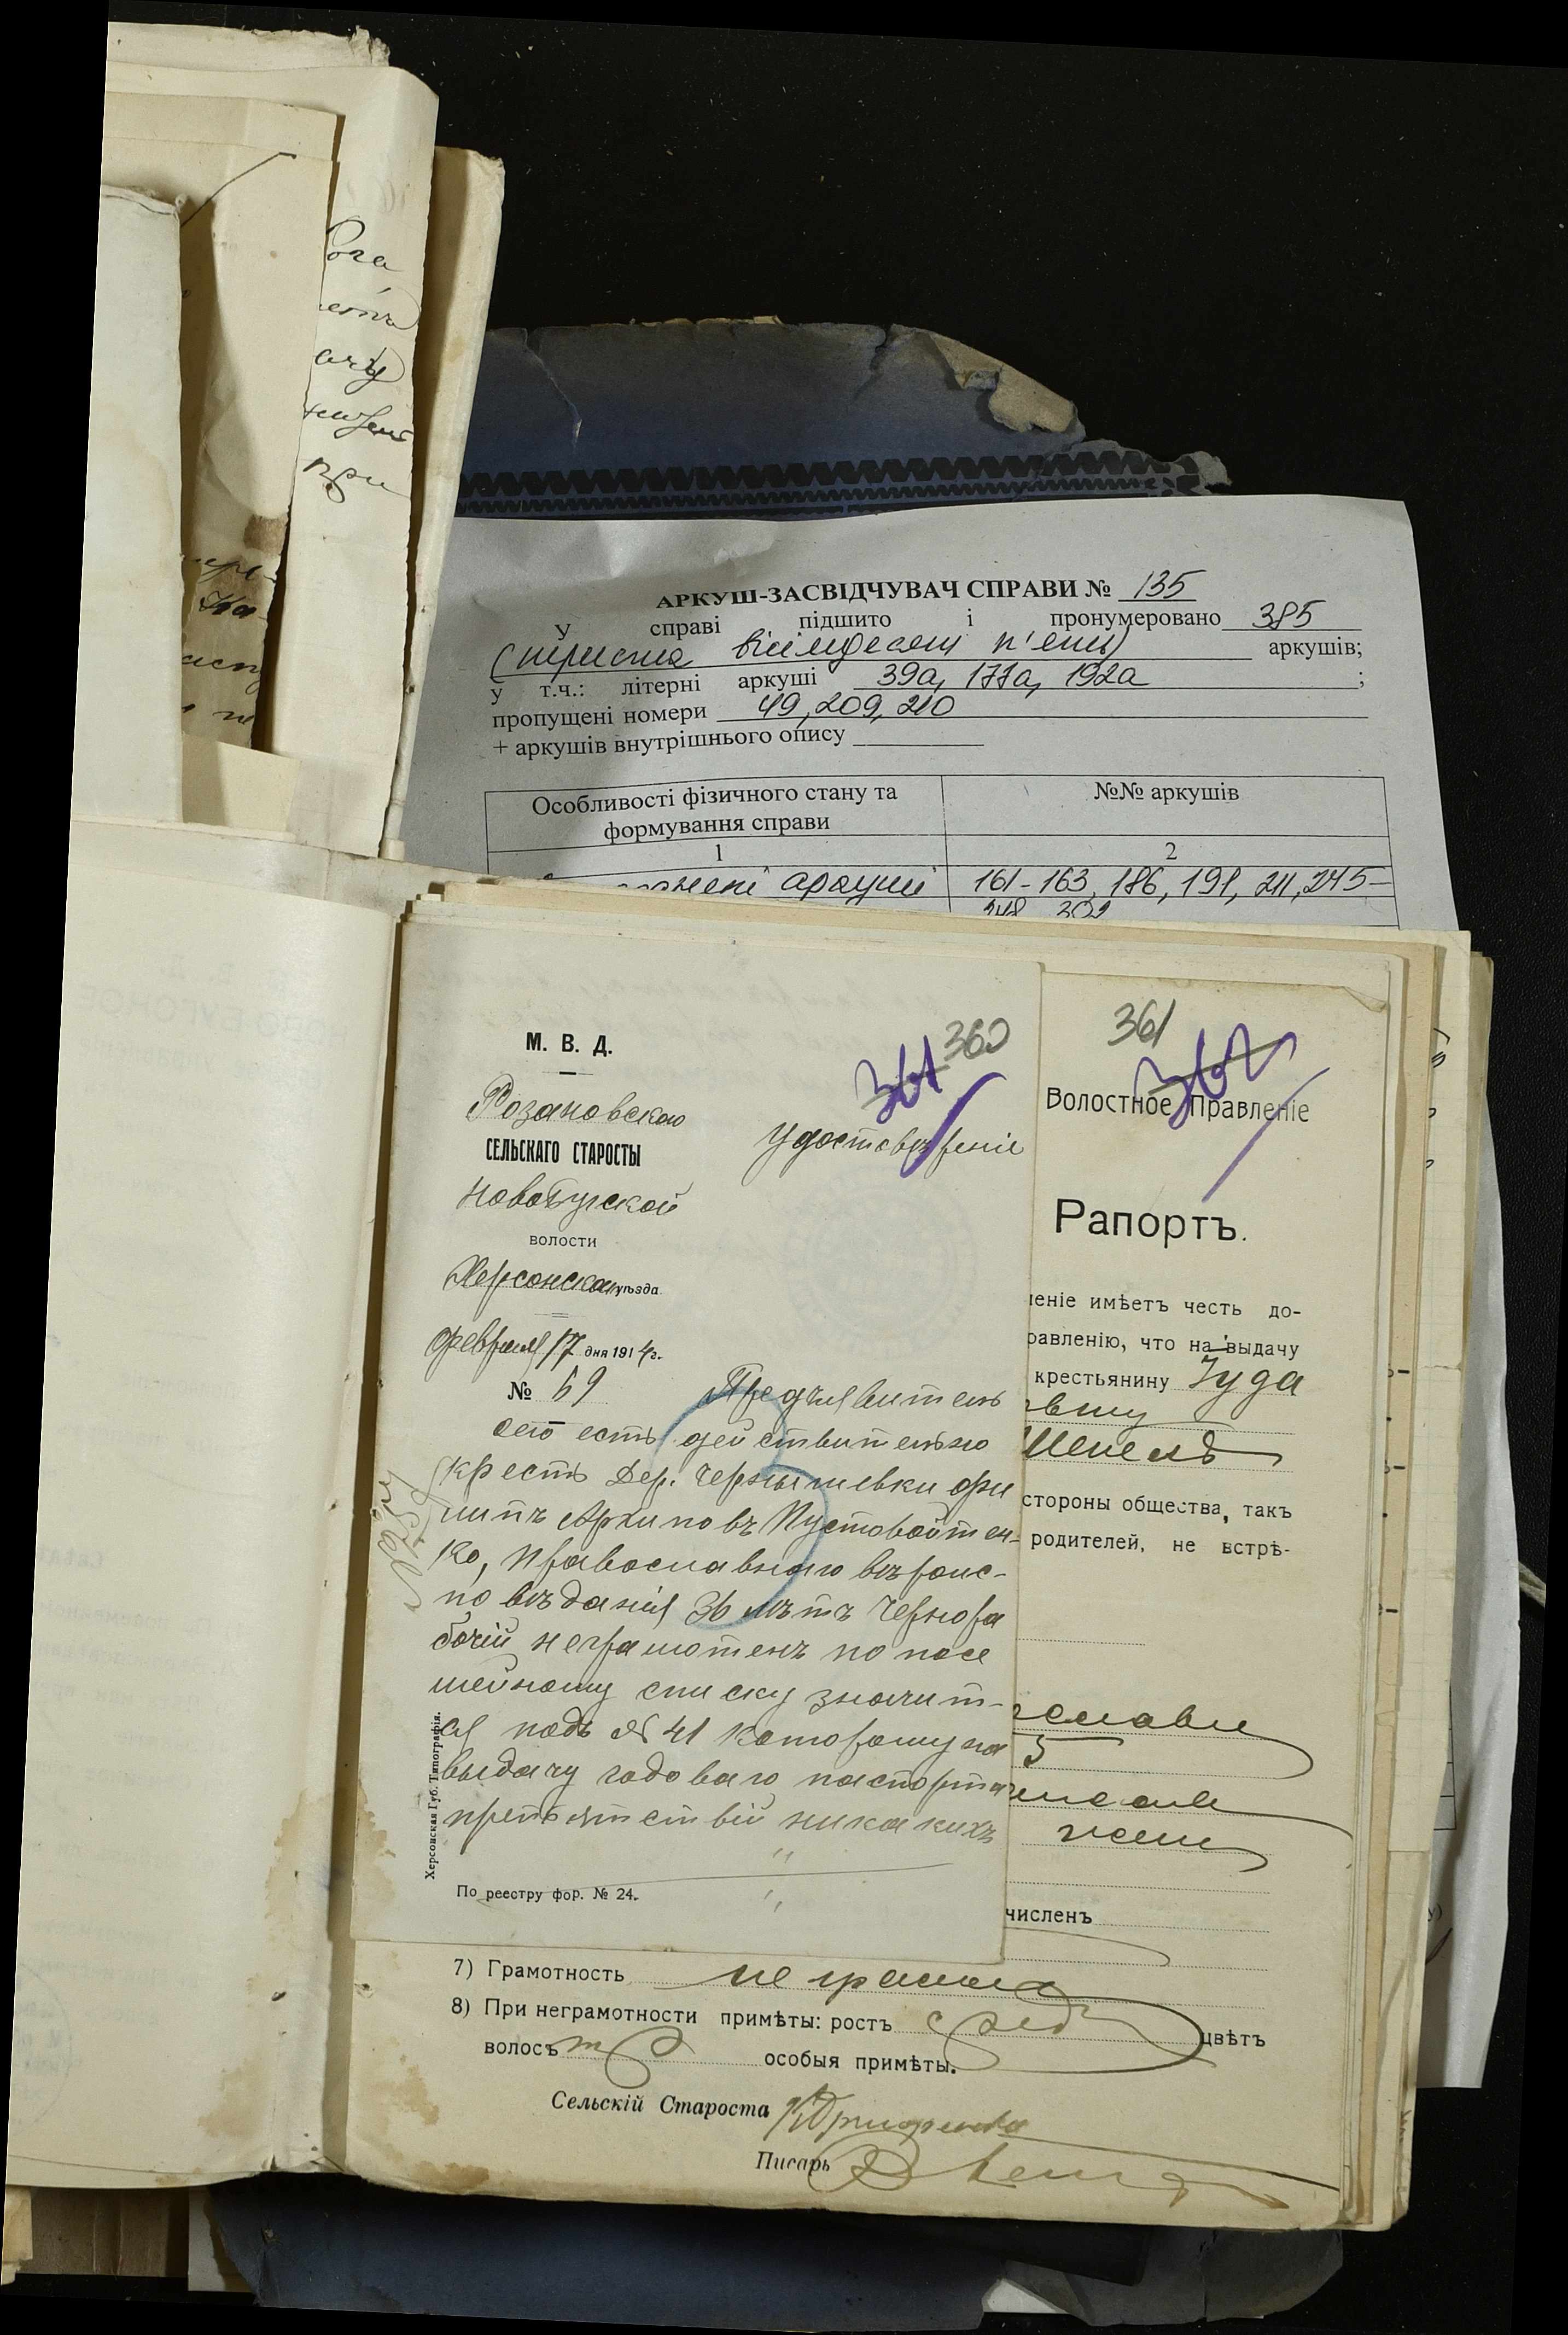 АРКУШ-ЗАСВІДЧУВАЧ СПРАВИ № 135
У справі підшито і пронумеровано 385
(триста вісімдесят п'ять) аркушів;
у т.ч.: літерні аркуші 39а, 177а, 192а ;
пропущені номери 49, 209, 210
+ аркушів внутрішнього опису
Особливості фізичного стану та формування справи
№№ аркушів
1
2
аркуші
161-163, 186, 191, 211, 245-
248 302
при
360
361
М. В. Д.
Розановскаго
СЕЛЬСКАГО СТАРОСТЫ
Новобугской
ВОЛОСТИ
Херсонскаго уѣзда
Февраля 17 дня 1914 г.
№ 59
Удостовѣреніе
Предъявитель
сего есть действительно
крест Дер. Чернышевки Фи
липъ Архиповъ Пустовойтен-
ко, Православнаго вѣроис-
повѣданія 36 лѣтъ Чернора
бочій неграмотенъ по посе
мейному списку значит-
ся подъ № 41 которому на
выдачу годоваго паспорта
препятствій никакихъ
Херсонская Губ. Типографія.
По реестру фор. № 24.
361
362
Волостное Правленіе
Рапортъ.
леніе имѣетъ честь до-
равленію, что на выдачу
крестьянину Іуда
Шепель
стороны общества, так
родителей, не встрѣ-
5
численъ
7) Грамотность не грамот
8) При неграмотности примѣты: ростъ сред цвѣтъ
волосъ особыя примѣты.
Сельскій Староста
Писарь